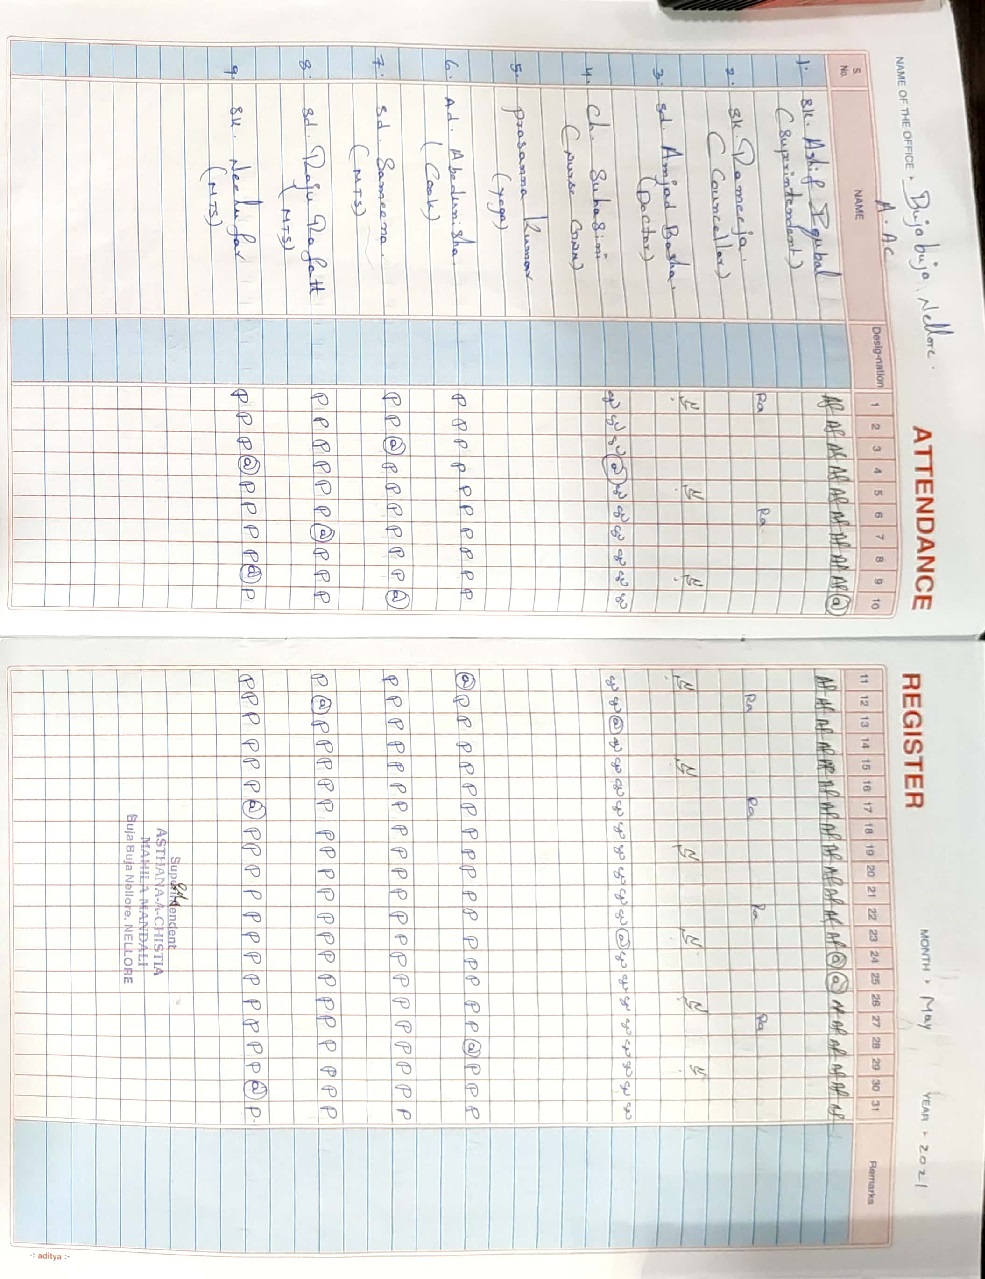 ATTENDANCE REGISTER
NAME OF THE OFFICE Bujabuja, Nellore. MONTH May YEAR 2021
A.AC
S. No. NAME Designation 1 2 3 4 5 6 7 8 9 10 11 12 13 14 15 16 17 18 19 20 21 22 23 24 25 26 27 28 29 30 31 Remarks
1. SK. Ashif Iqubal
(Suprintendent)
2. SK. Rameeja.
(Councellor)
Ra Ra Ra Ra Ra Ra
3. Sd. Amjad Basha.
(Doctor)
4. Ch. Subasini
(Nurse
5. Prasanna Kumar
(yoga)
6. Ad. Abedunisha.
(Cook)
P P P P P P P P P P a P P P P P P P P P P P P P P P P a P P P
7. Sd. Sameena.
(MTS)
P P a P P P P P P a P P P P P P P P P P P P P P P P P P P P P
8. Sd. Raju Rafatt
(MTS)
P P P P P P a P P P P a P P P P P P P P P P P P P P P P P P P
9. SK. Neelufar
(MTS)
P P P a P P P P a P P P P P P P a P P P P P P P P P P P P a P
Superintendent
ASTHANA-A-CHISTIA
MAHILA MANDALI
Buja Buja Nellore. NELLORE
-: aditya :-